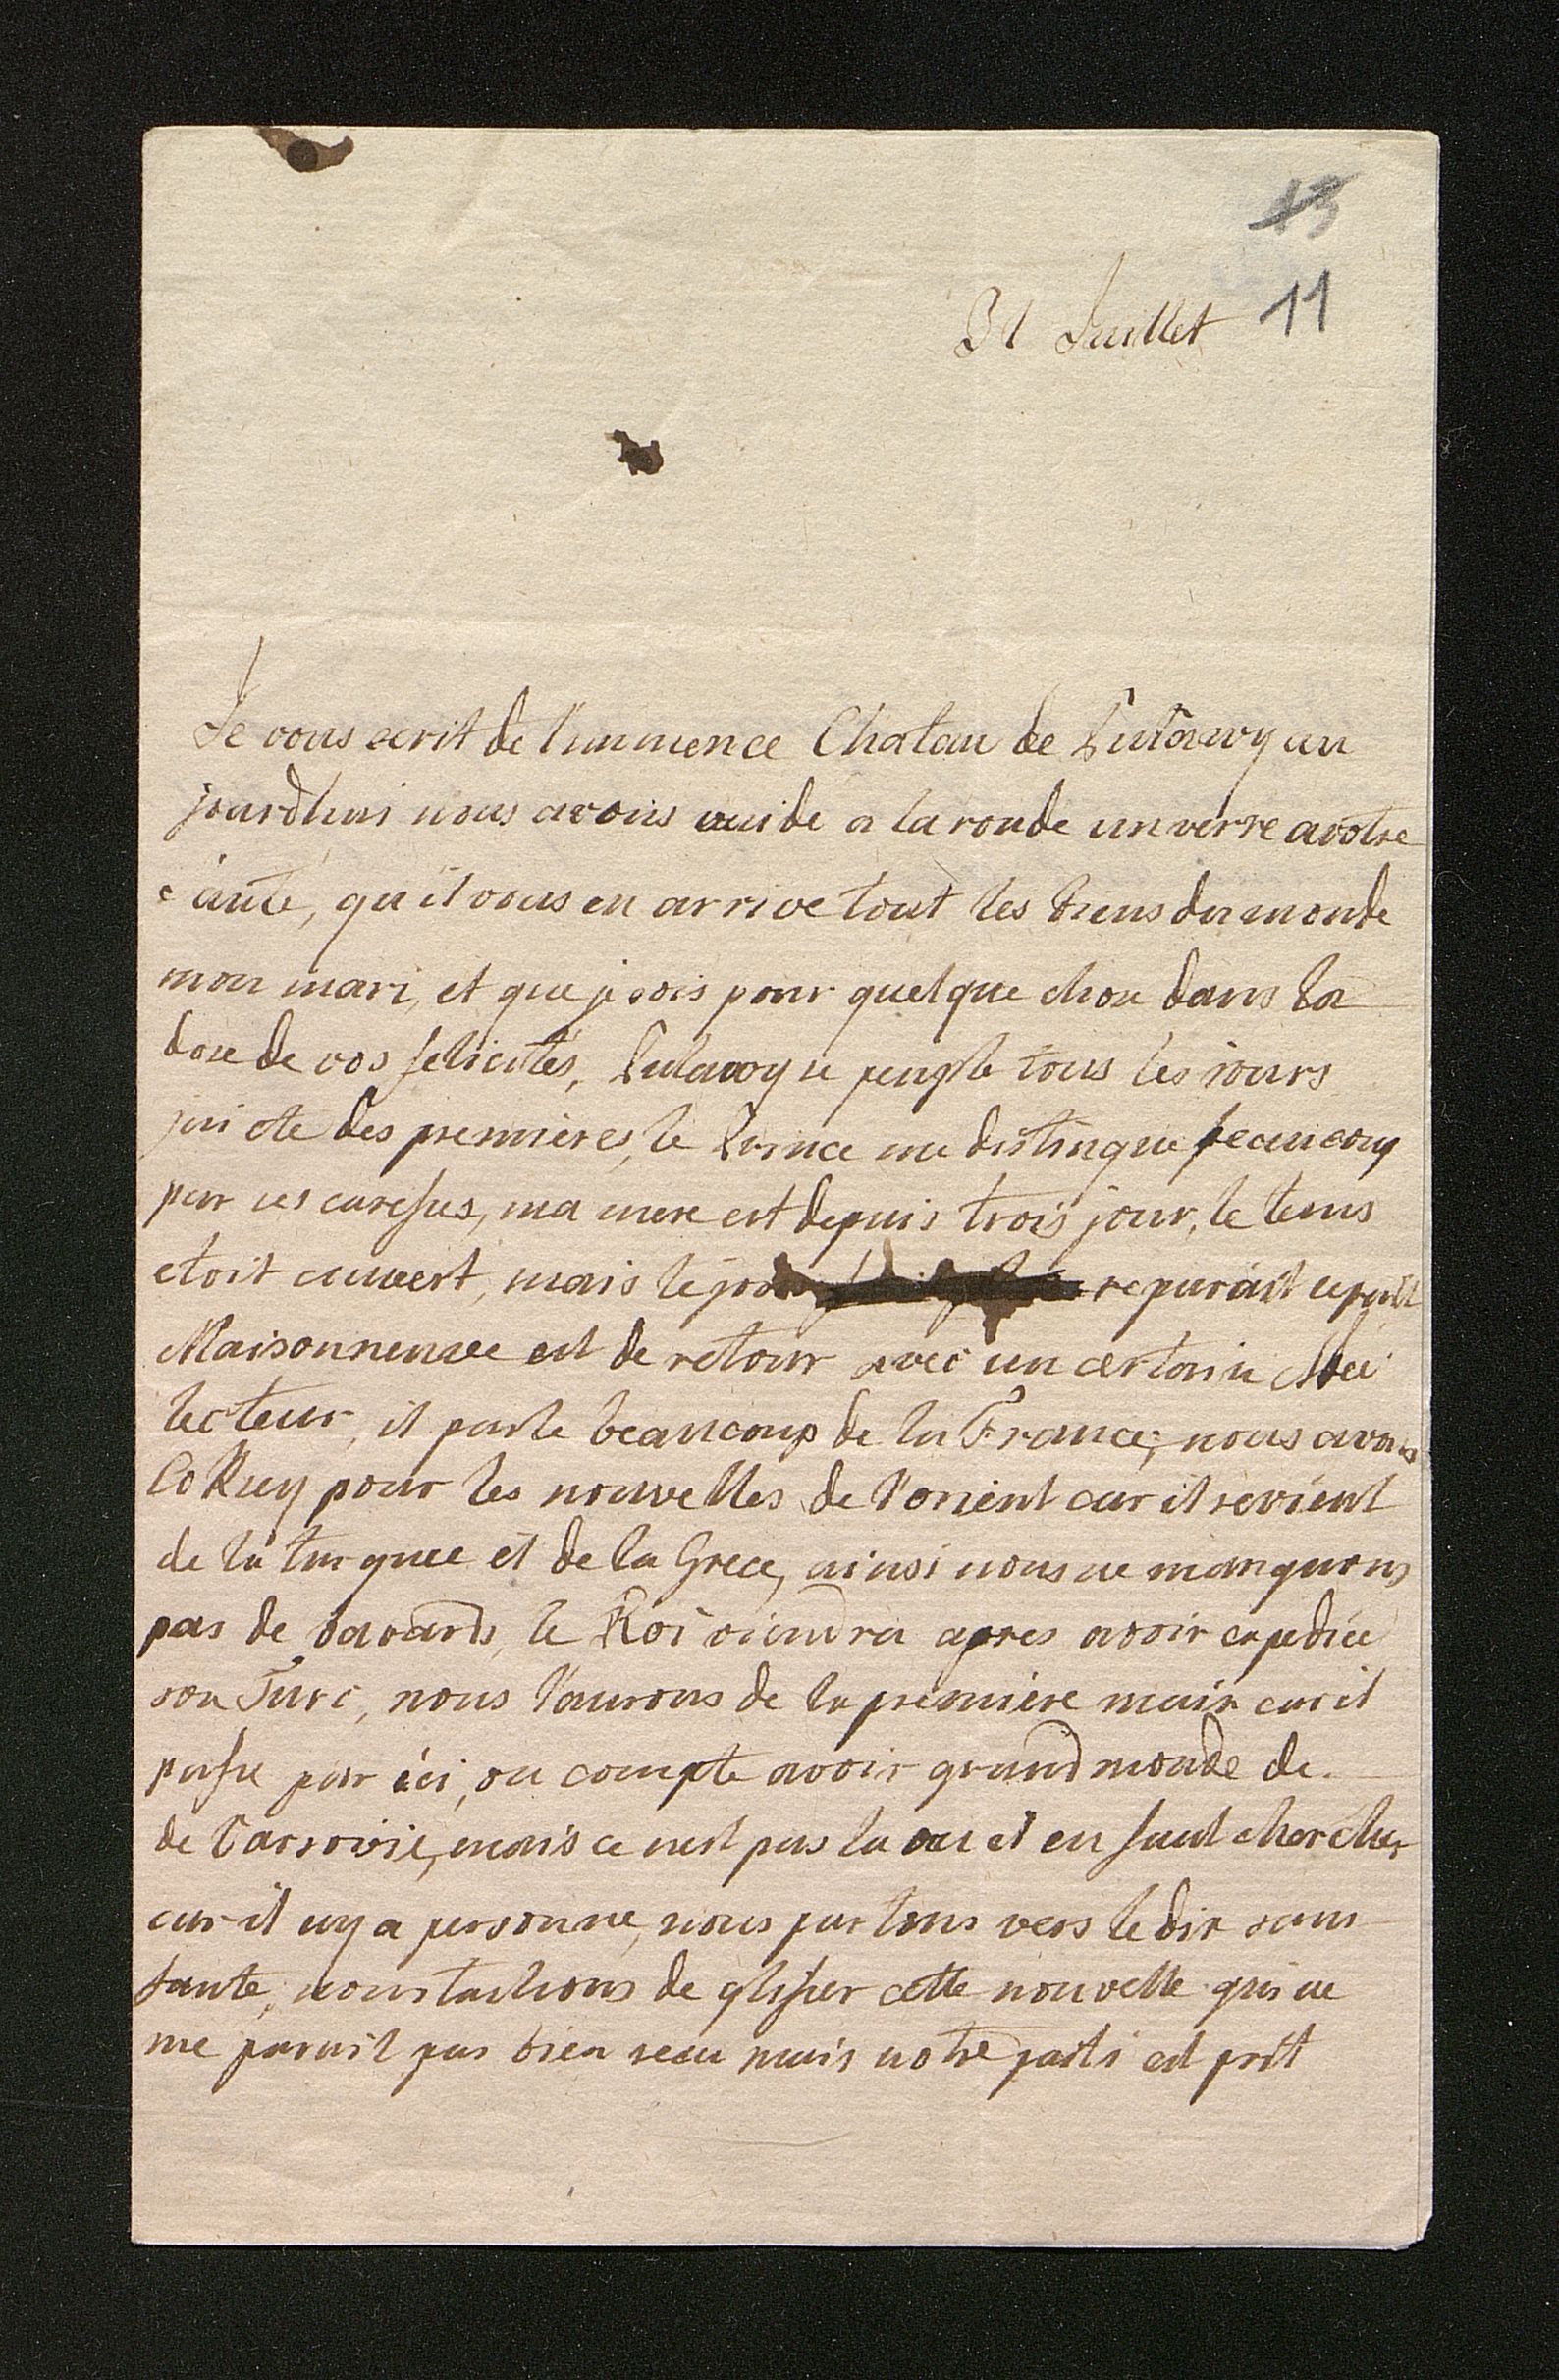 13
11
31 Juillet
Je vous ecrit de l'immence Chatau de Pulawy au
jourdhui nous avons vuidé a la ronde un verre a votre
canté, qu'il vous en arrive tout les biens du monde
mon mari, et que je sois pour quelque chose dans la
dose de vos felicités, Pulawy se peuple tous les jours
jai ete des premieres, le Prince me distingue beaucoup
par ses caresses, ma mere est depuis trois jour, le tems
etoit couvert, mais le reparait le petit
Maisonneuve est de retour avec un certain
lecteur, il parle beaucoup de la France, nous avons
pour les nouvelles de l'orient car il revient
de la turquee et de la Grece, ainsi nous ne manquons
pas de bavards, le Roi viendra apres avoir expediée
son Turc, nous l'aurons de la premiere main car il
passe par ici, on compte avoir grand monde de
de Varsovie, mais ce nest pas la ou il en faut chercher
car il ny a personne, nous partons vers le dix sans
faute, nous tachons de glisser cette nouvelle qui ne
me parait pas bien recu mais notre parti est prit